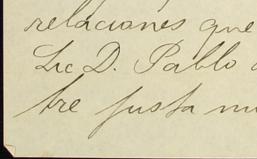 relaciones que
Lic D. Pablo
tre justa mi